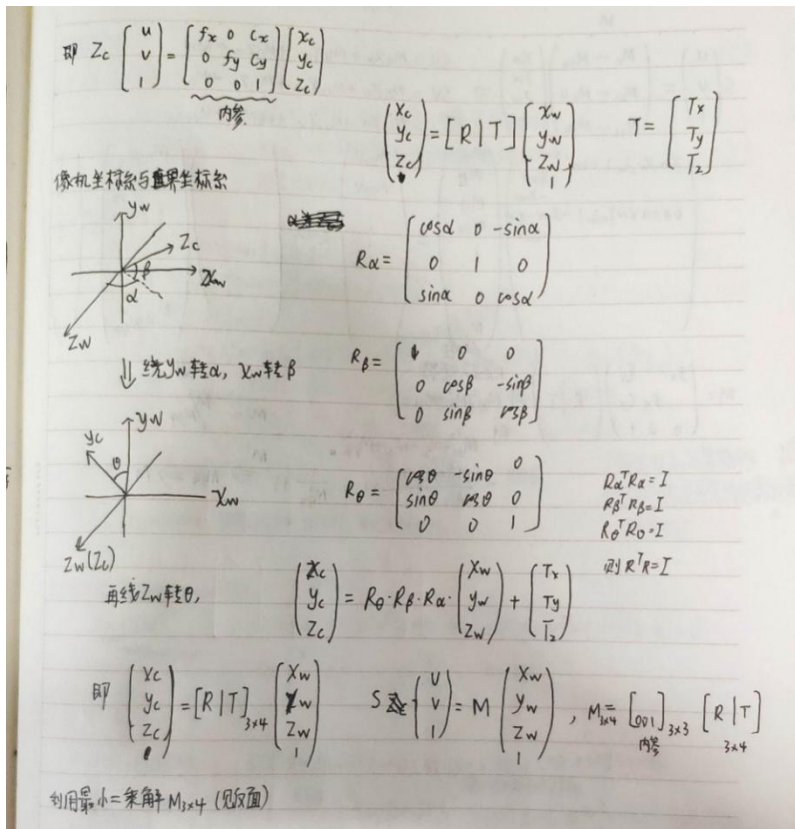 即 Zc (u v 1) = (fx 0 cx 0 fy cy 0 0 1) (xc yc zc)
内参
(xc yc zc) = [R|T] (xw yw zw 1) T = [Tx Ty Tz]
像机坐标系与世界坐标系
yw
Zc
β
xw
α
Zw
Rα = (cosα 0 -sinα 0 1 0 sinα 0 cosα)
⇓ 绕yw转α, xw转β
Rβ = (1 0 0 0 cosβ -sinβ 0 sinβ cosβ)
yw
yc
θ
xw
Zw(Zc)
Rθ = (cosθ -sinθ 0 sinθ cosθ 0 0 0 1)
RαᵀRα = I
RβᵀRβ = I
RθᵀRθ = I
则 RᵀR = I
再绕Zw转θ,
(xc yc zc) = Rθ·Rβ·Rα· (xw yw zw) + (Tx Ty Tz)
即 (xc yc zc) = [R|T]3×4 (xw yw zw 1) S (u v 1) = M (xw yw zw 1) , M3×4 = [001]3×3 [R|T]
内参 3×4
利用最小二乘解 M3×4 (见反面)